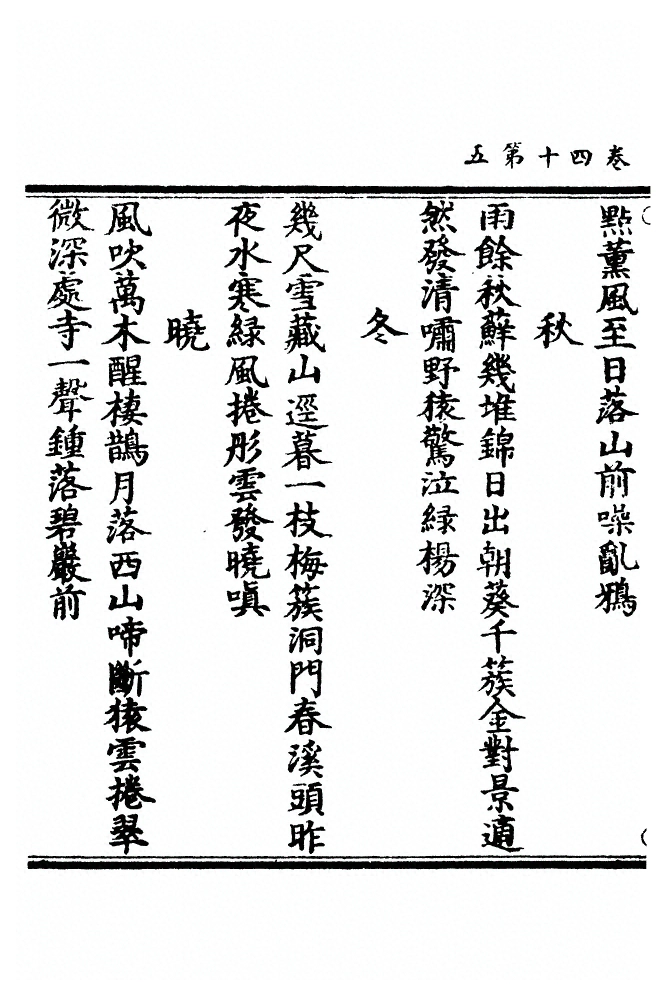 卷四十第五
點薰風至日落山前噪亂鴉
秋
雨餘秋蘚幾堆錦日出朝葵千簇金對景適
然發清嘯野猿驚泣綠楊深
冬
幾尺雪藏山逕暮一枝梅簇洞門春溪頭昨
夜水寒綠風捲彤雲發曉嗔
曉
風吹萬木醒棲鵲月落西山啼斷猿雲捲翠
微深處寺一聲鍾落碧巖前